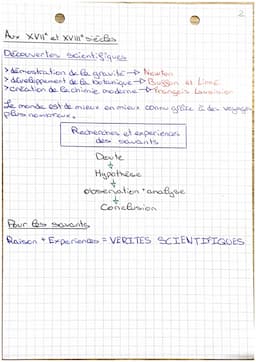 2
Aux XVII° et XVIII° siècles
Découvertes scientifiques
> démonstration de la gravité → Newton
> développement de la botanique → Buffon et Linné
> création de la chimie moderne → François Lavoisier
Le monde est de mieux en mieux connu grâce à des voyages
plus nombreux.
Recherches et experiences
des savants
Doute
↓
Hypothèse
↓
observation + analyse
↓
Conclusion
Pour les savants
Raison + Experiences = VERITES SCIENTIFIQUES